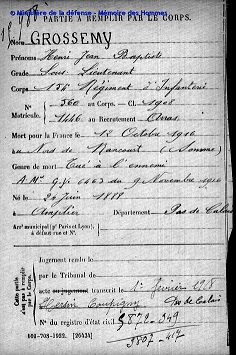 © Ministère de la défense - Mémoire des Hommes
PARTIE À REMPLIR PAR LE CORPS.
Nom GROSSEMY
Prénoms Henri Jean Baptiste
Grade Sous Lieutenant
Corps 156 Régiment d'Infanterie
N° 560 au Corps. — Cl. 1908
Matricule. 1446 au Recrutement Arras
Mort pour la France le 12 Octobre 1916
au Nord de Rancourt (Somme)
Genre de mort Tué à l'ennemi
Né le 20 Juin 1888
à Département Pas de Calais
Arr' municipal (p' Paris et Lyon),
à défaut rue et N°.
Cette partie
n'est pas à remplir
par le Corps.
Jugement rendu le
par le Tribunal de
acte ou jugement transcrit le 1er février 1918
à Hersin Coupigny Pas de Calais
N° du registre d'état civil